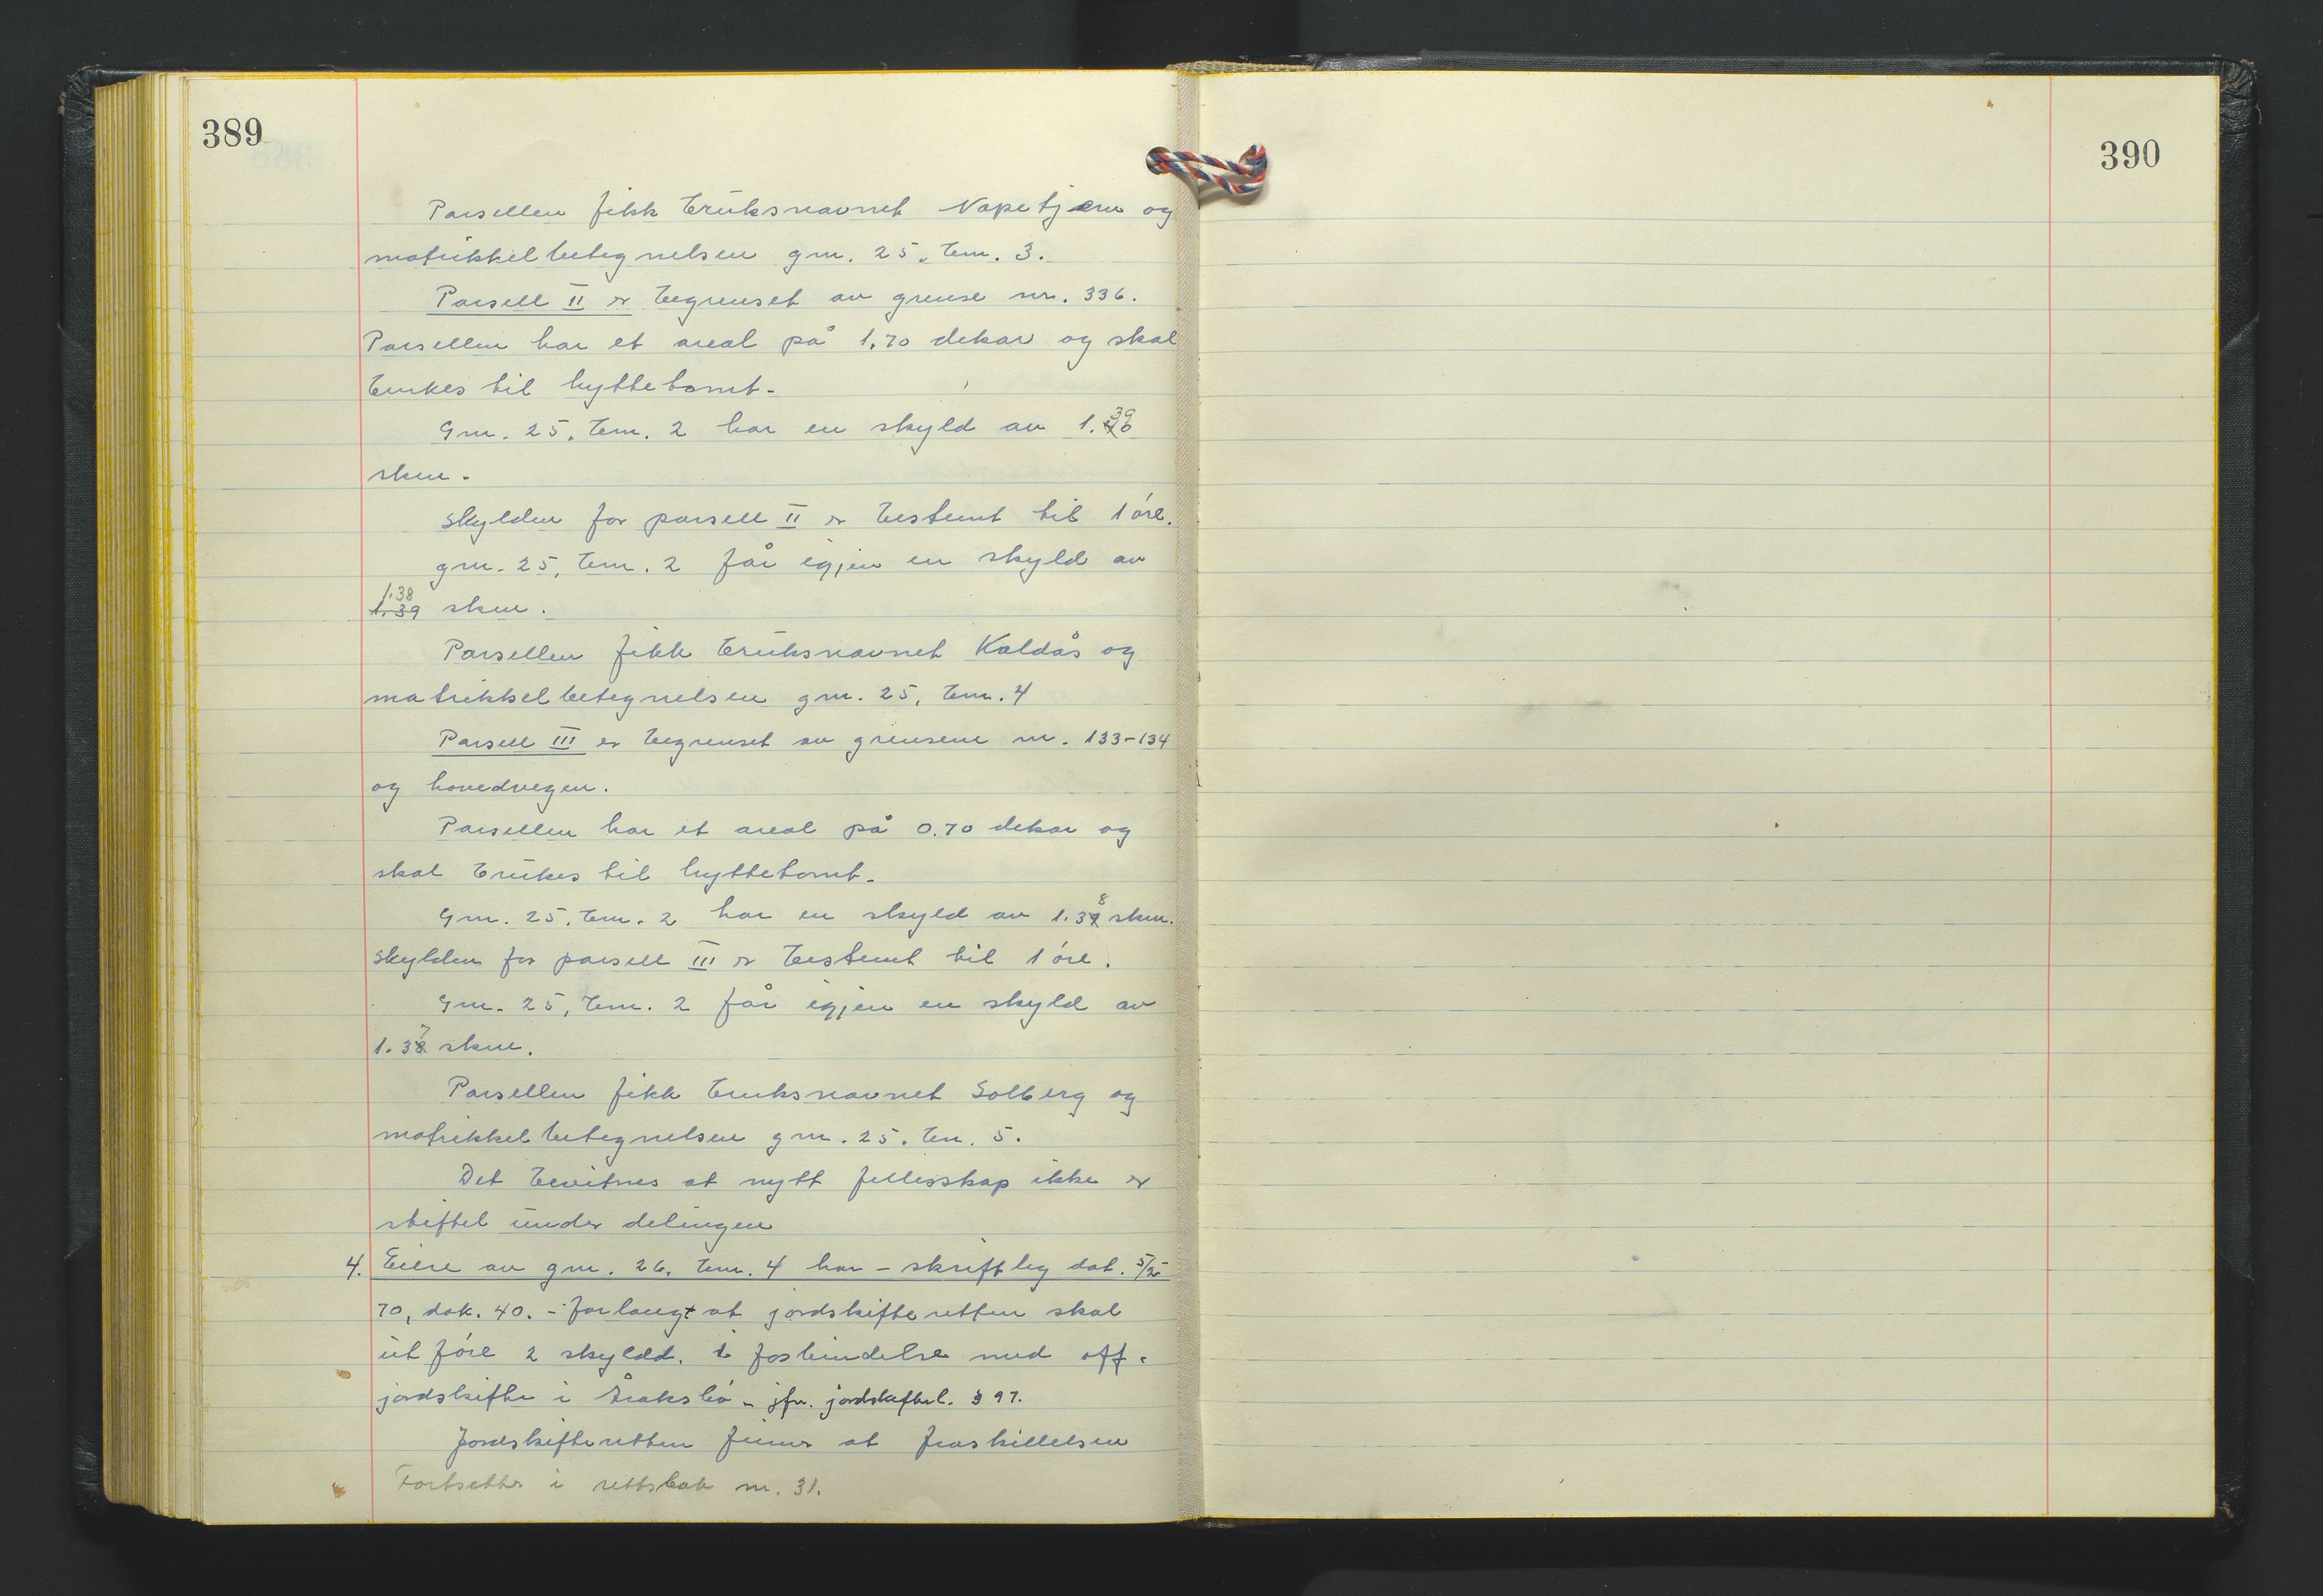 389
390
Parsellen fikk bruksnavnet Napetjern og
matrikkelbetegnelsen gnr. 25, bnr. 3.
Parsell II er begrenset av grense nr. 336.
Parsellen har et areal på 1,70 dekar og skal
brukes til hyttetomt.
39
Gnr. 25, bnr. 2 har en skyld av 1.40
skm.
Skylden for parsell II er bestemt til 1 øre.
gnr. 25, bnr. 2 får igjen en skyld av
1.38
1.39 skm.
Parsellen fikk bruksnavnet Kaldås og
matrikkelbetegnelsen gnr. 25, bnr. 4
Parsell III er begrenset av grensene nr. 133-134
og hovedvegen.
Parsellen har et areal på 0.70 dekar og
skal brukes til hyttetomt.
8
Gnr. 25, bnr. 2 har en skyld av 1.39 skm.
Skylden for parsell III er bestemt til 1 øre.
Gnr. 25, bnr. 2 får igjen en skyld av
7
1.38 skm.
Parsellen fikk bruksnavnet Solberg og
matrikkelbetegnelsen gnr. 25, bnr. 5.
Det bevitnes at nytt fellesskap ikke er
stiftet under delingen
4. Eiere av gnr. 26, bnr. 4 har - skriftleg dat. 5/5
70, dok. 40. - forlangt at jordskifteretten skal
utføre 2 skyldd. i forbindelse med off.
jordskifte i Åraksbø - jfr. jordskiftel. § 97.
Jordskifteretten finner at fraskillelsen
Fortsetter i rettsbok nr. 31.